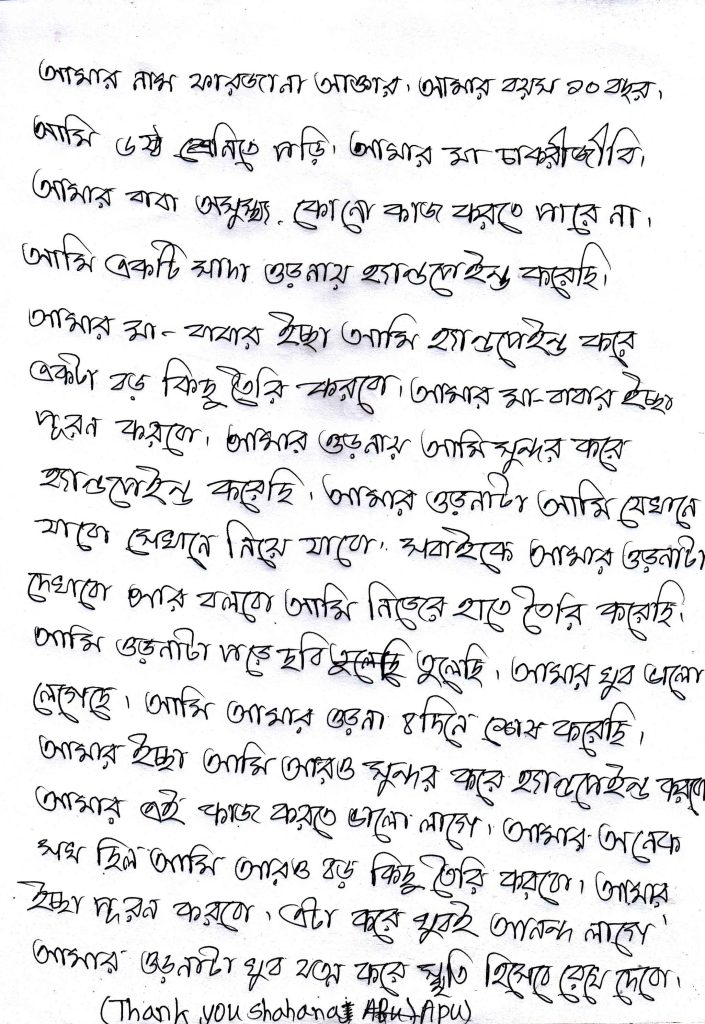 আমার নাম ফারজানা আক্তার। আমার বয়স ১০ বছর।
আমি ৬ষ্ঠ শ্রেনিতে পড়ি। আমার মা চাকরীজীবি।
আমার বাবা অসুস্থ্য. কোনো কাজ করতে পারে না।
আমি একটি সাদা ওড়নায় হ্যান্ডপেইন্ড করেছি।
আমার মা-বাবার ইচ্ছা আমি হ্যান্ডপেইন্ড করে
একটা বড় কিছু তৈরি করবো। আমার মা-বাবার ইচ্ছা
পূরন করবো। আমার ওড়নায় আমি সুন্দর করে
হ্যান্ডপেইন্ড করেছি। আমার ওড়নাটা আমি যেখানে
যাবো সেখানে নিয়ে যাবো। সবাইকে আমার ওড়নাটা
দেখাবো আর বলবো আমি নিজের হাতে তৈরি করেছি।
আমি ওড়নাটা পড়ে ছবি তুলেছি। আমার খুব ভালো
লেগেছে। আমি আমার ওড়না ৪দিনে শেষ করেছি।
আমার ইচ্ছা আমি আরও সুন্দর করে হ্যান্ডপেইন্ড করবো
আমার এই কাজ করতে ভালো লাগে। আমার অনেক
সখ ছিল আমি আরও বড় কিছু তৈরি করবো। আমার
ইচ্ছা পূরন করবো। এটা করে খুবই আনন্দ লাগে
আমার ওড়নাটা খুব যত্ন করে স্মৃতি হিসেবে রেখে দেবো।
(Thank you shahana Apu)